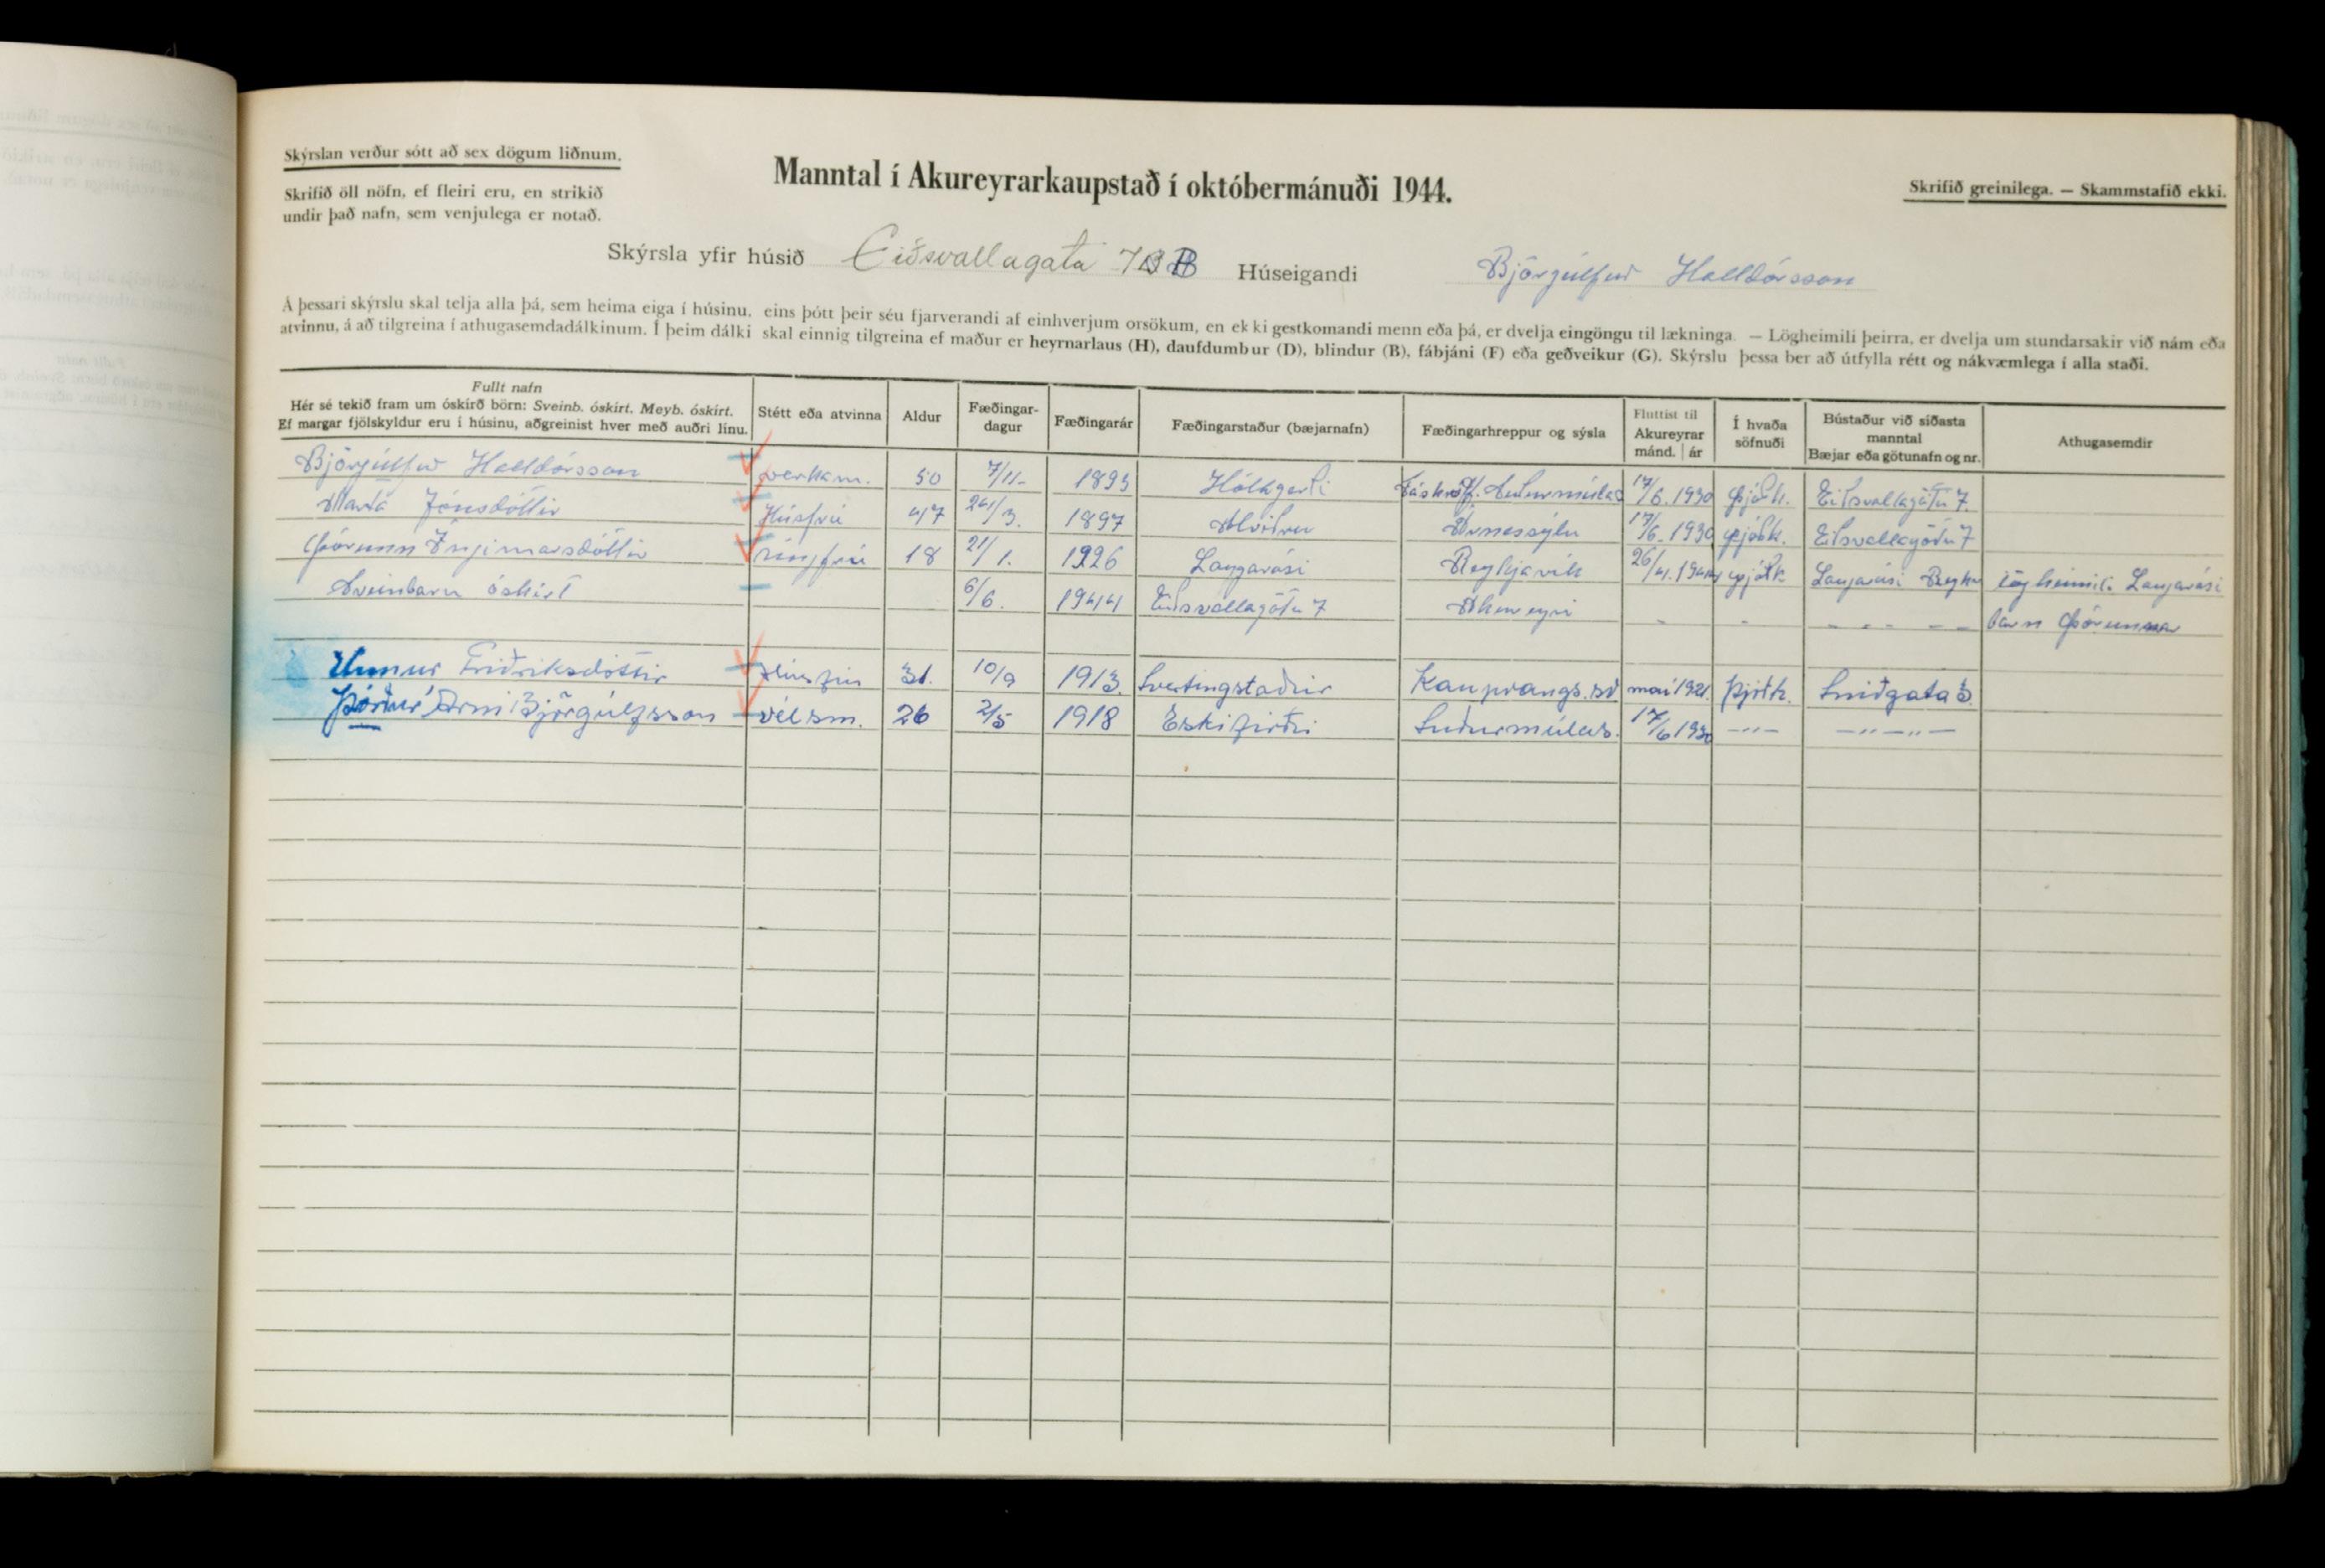 Skýrslan verður sótt að sex dögum liðnum.
Skrifið öll nöfn, ef fleiri eru, en strikið
undir það nafn, sem venjulega er notað.
Manntal í Akureyrarkaupstað í októbermánuði 1944.
Skrifið greinilega. — Skammstafið ekki.
Skýrsla yfir húsið Eiðsvallagata 7 B Húseigandi Björgúlfur Halldórsson
Á þessari skýrslu skal telja alla þá, sem heima eiga í húsinu, eins þótt þeir séu fjarverandi af einhverjum orsökum, en ekki gestkomandi menn eða þá, er dvelja eingöngu til lækninga. — Lögheimili þeirra, er dvelja um stundarsakir við nám eða
atvinnu, á að tilgreina í athugasemdadálkinum. Í þeim dálki skal einnig tilgreina ef maður er heyrnarlaus (H), daufdumbur (D), blindur (B), fábjáni (F) eða geðveikur (G). Skýrslu þessa ber að útfylla rétt og nákvæmlega í alla staði.
Fullt nafn
Hér sé tekið fram um óskírð börn: Sveinb. óskírt. Meyb. óskírt.
Ef margar fjölskyldur eru í húsinu, aðgreinist hver með auðri línu.
Stétt eða atvinna
Aldur
Fæðingar-
dagur
Fæðingarár
Fæðingarstaður (bæjarnafn)
Fæðingarhreppur og sýsla
Fluttist til
Akureyrar
mánd. | ár
Í hvaða
söfnuði
Bústaður við síðasta
manntal
Bæjar eða götunafn og nr.
Athugasemdir
Björgúlfur Halldórsson verkam. 50 7/11- 1893 Hólkgerði Fáskrúðf. Suðurmúlas 17/6.1930 þjóðk. Eiðsvallagötu 7.
María Jónsdóttir Húsfrú 47 24/3. 1897 Alviðru Árnessýlu 17/6.1930 þjóðk. Eiðsvallagötu 7
Þórunn Ingimarsdóttir 18 21/1. 1926 Laugarási Reykjavík 26/4.1944 þjóðk Laugarási Reykv lögheimili Laugarási
Sveinbarn óskírt 6/6. 1944 Eiðsvallagötu 7 Akureyri - - - - - - - barn Þórunnar
Unnur Friðriksdóttir Húsfrú 31. 10/9 1913. Svertingstaðir Kaupvangs.sv maí 1921. Þjóðk. Sniðgata 3.
Þórður Árni Björgúlfsson vélsm. 26 2/5 1918 Eskifirði Suðurmúlas. 17/6 1930 -"- -"-"-